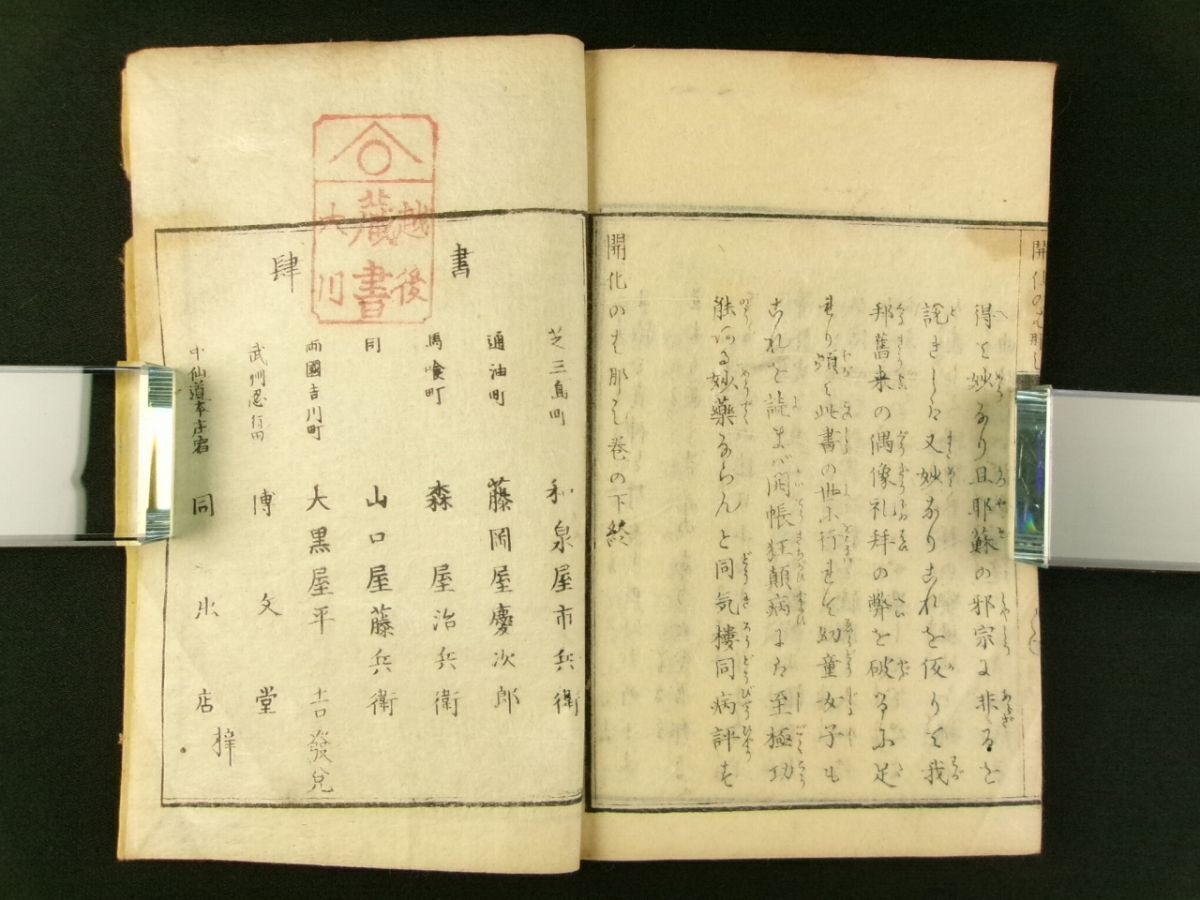 開化のはなし
得て妙なり且耶蘇の邪宗に非るを
説きしは又妙なりこれを仮りて我
邦舊来の偶像礼拝の弊を破るに足
れり嗚呼此書の世に行れて幼童女子も
これを読まバ開帳狂顛病には至極功
能ある妙藥ならんと同気樓同病評す
開化のはなし巻の下終
書肆
芝三島町 和泉屋市兵衛
通油町 藤岡屋慶次郎
馬喰町 森屋治兵衛
同 山口屋藤兵衛
両國吉川町 大黒屋平吉發兌
武州忍行田 博文堂
中仙道本庄宿 同出店
梓
越後
藏書
大川